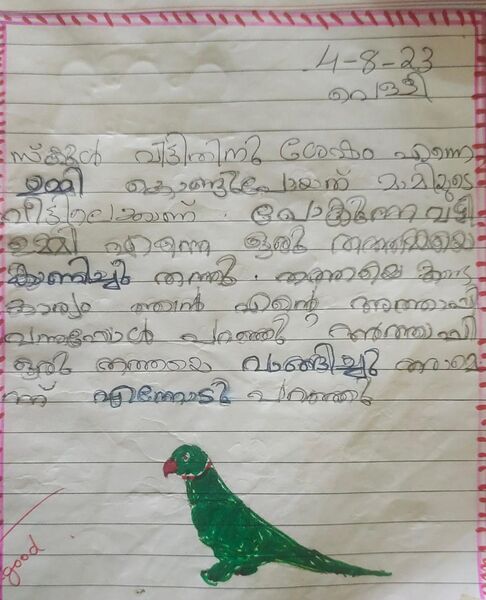 4-8-23
വെള്ളി
സ്കൂൾ വിട്ടതിനു ശേഷം എന്നെ
ഉമ്മി കൊണ്ടുപോയത് മാമിയുടെ
വീട്ടിലേക്കാണ്. പോകുന്ന വഴി
ഉമ്മി എന്നെ ഒരു തത്തയെ
കാണിച്ചു തന്നു. തത്തയെ കണ്ട
കാര്യം ഞാൻ എന്റെ അത്താഫി
വന്നപ്പോൾ പറഞ്ഞു അത്താഫി
ഒരു തത്തയെ വാങ്ങിച്ചു തരാമെ
ന്ന് എന്നോട് പറഞ്ഞു
good